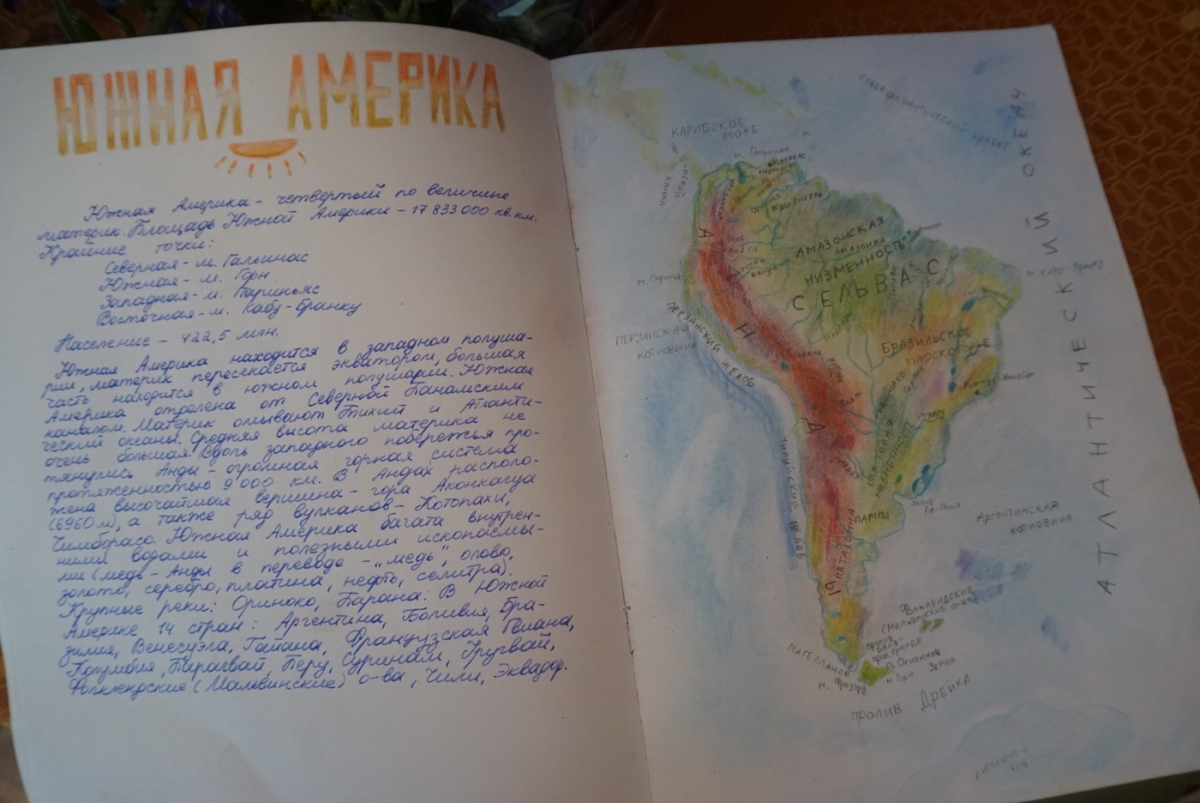 ЮЖНАЯ АМЕРИКА
Южная Америка - четвертый по величине
материк. Площадь Южной Америки - 17 833 000 кв.км.
Крайние точки:
Северная - м. Гальинас
Южная - м. Горн
Западная - м. Париньяс
Восточная - м. Кабу-Бранку
Население - 422,5 млн.
Южная Америка находится в западном полуша-
рии, материк пересекается экватором, большая
часть находится в южном полушарии. Южная
Америка отделена от Северной Панамским
каналом. Материк омывают Тихий и Атланти-
ческий океаны. Средняя высота материка не
очень большая. Вдоль западного побережья про-
тянулись Анды - огромная горная система
протяженностью 9 000 км. В Андах располо-
жена высочайшая вершина - гора Аконкагуа
(6960 м), а также ряд вулканов - Котопахи,
Чимборасо. Южная Америка багата внутрен-
ними водами и полезными ископаемы-
ми (медь - Анды в переводе - "медь", олово,
золото, серебро, платина, нефть, селитра).
Крупные реки: Ориноко, Парана. В Южной
Америке 14 стран: Аргентина, Боливия, Бра-
зилия, Венесуэла, Гайана, Французская Гвиана,
Колумбия, Парагвай, Перу, Суринам, Уругвай,
Фолклендские (Мальвинские) о-ва, Чили, Эквадор.
КАРИБСКОЕ
МОРЕ
АТЛАНТИЧЕСКИЙ ОКЕАН
АМАЗОНСКАЯ
НИЗМЕННОСТЬ
СЕЛЬВАС
АНДЫ
м. Кабу-Бранку
ПЕРУАНСКАЯ
КОТЛОВИНА
ПЕРУАНСКИЙ ЖЕЛОБ
БРАЗИЛЬСКОЕ
ПЛОСКОГОРЬЕ
ЧИЛИЙСКИЙ ЖЕЛОБ
ПАМПА
ПАТАГОНИЯ
Аргентинская
КОТЛОВИНА
ФОЛКЛЕНДСКИЕ
(МАЛЬВИНСКИЕ О-ВА)
О. Огненная
Земля
м. Горн
МАГЕЛЛАНОВ
ПРОЛИВ ДРЕЙКА